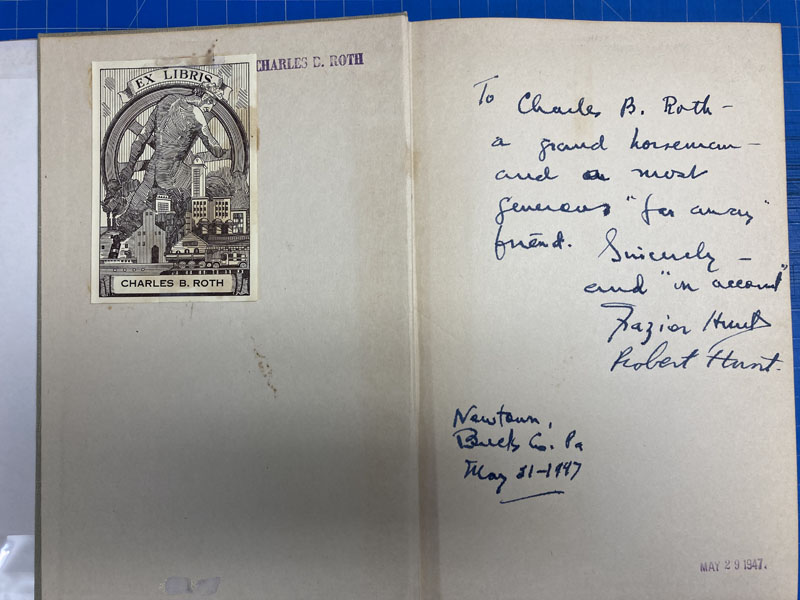 EX LIBRIS
CHARLES B. ROTH
CHARLES B. ROTH
To Charles B. Roth –
a grand horseman –
and a most
generous "far away"
friend. Sincerely –
and "in accord"
Frazier Hunt
Robert Hunt.
Newtown,
Bucks Co. Pa
May 21-1947
MAY 29 1947.